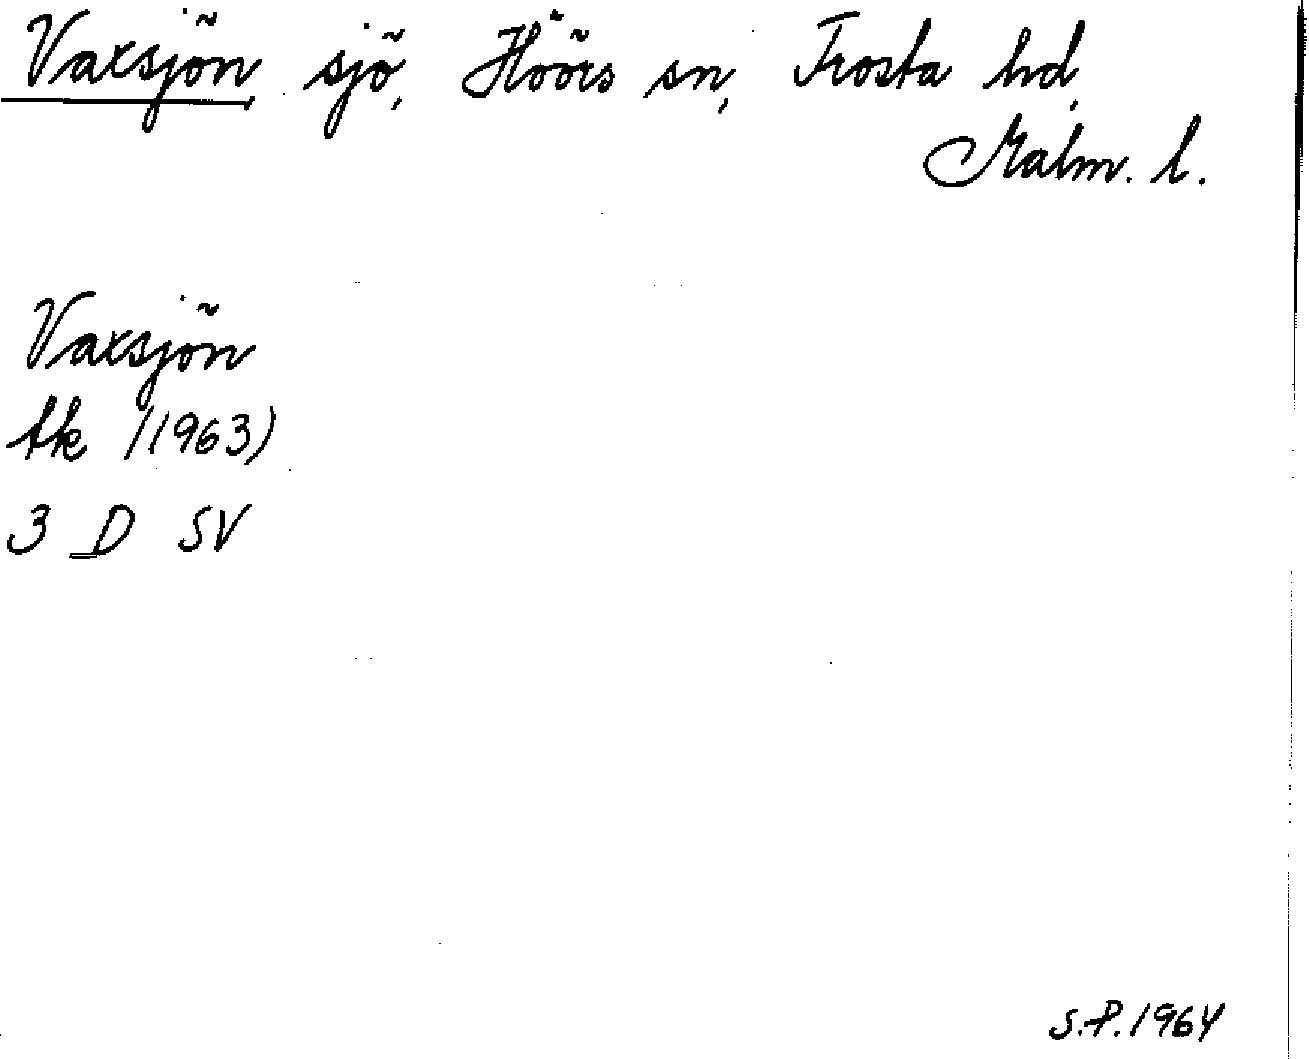 Vaxsjön sjö, Höörs sn, Frosta hd,
Malm. l.
Vaxsjön
tk (1963)
3 D SV
S.P. 1964